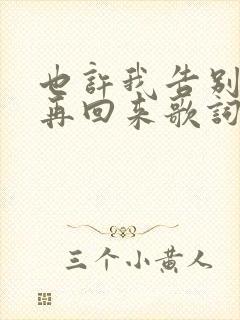 也許我告別
再回来歌詞
三个小黄人